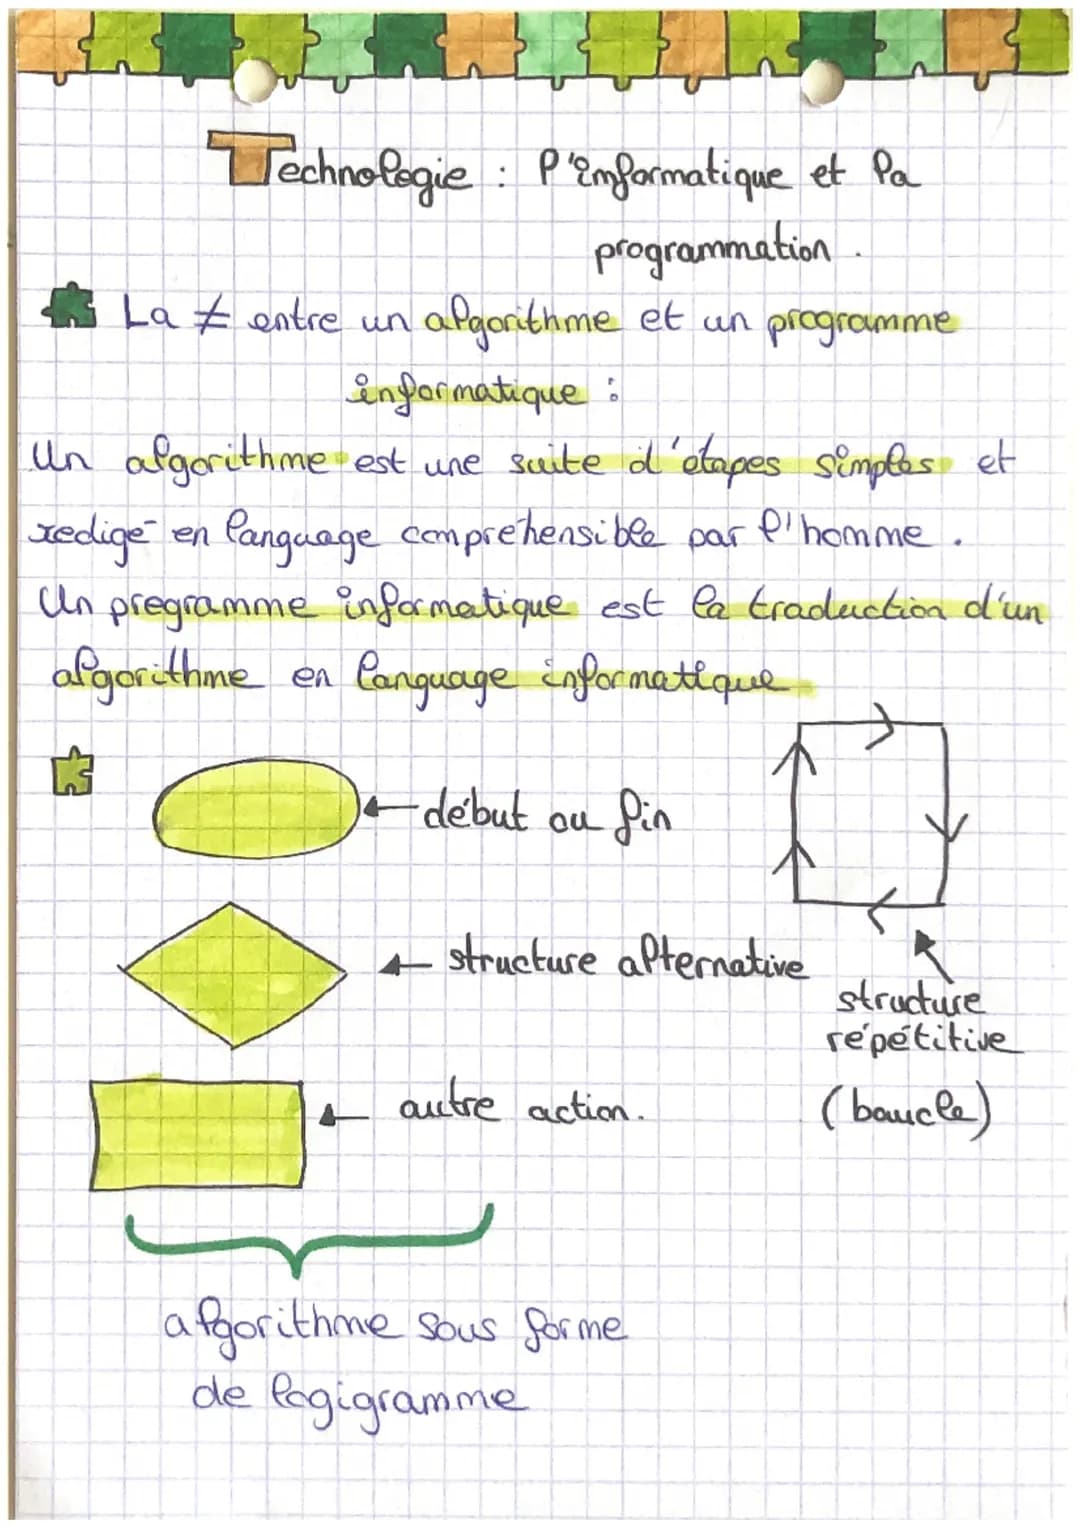 Technologie : l'informatique et la
programmation.
La ≠ entre un algorithme et un programme
informatique :
Un algorithme est une suite d'étapes simples et
redigé en language compréhensible par l'homme.
Un programme informatique est la traduction d'un
algorithme en language informatique
début ou fin
structure alternative
structure
répétitive
(boucle)
autre action.
algorithme sous forme
de logigramme